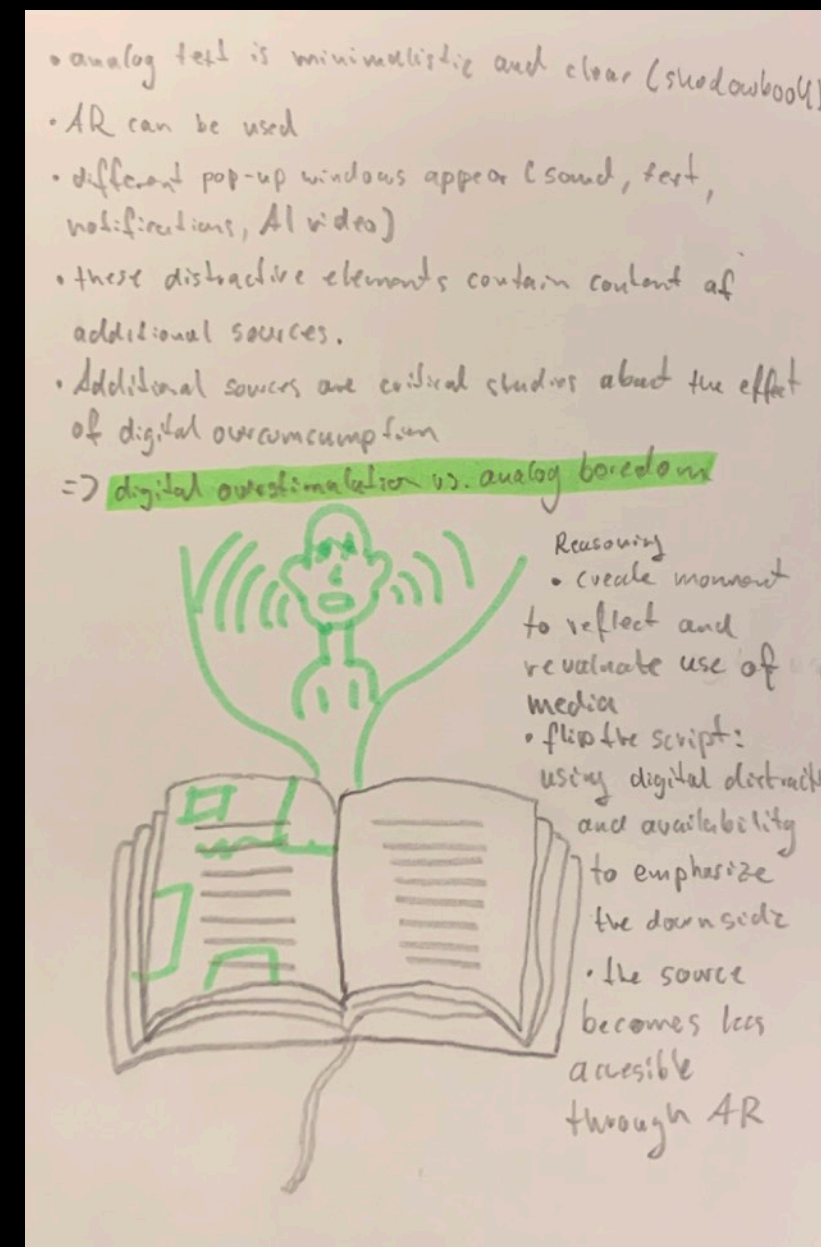 • analog text is minimalistic and clear (shadowbook)
• AR can be used
• different pop-up windows appear (sound, text,
notifications, AI video)
• these distractive elements contain content of
additional sources.
• Additional sources are critical studies about the effect
of digital overcumcumption
=> digital overstimulation vs. analog boredom
Reasoning
• create moment
to reflect and
revaluate use of
media
• flip the script:
using digital
and availability
to emphasize
the downside
• the source
becomes less
accesible
through AR